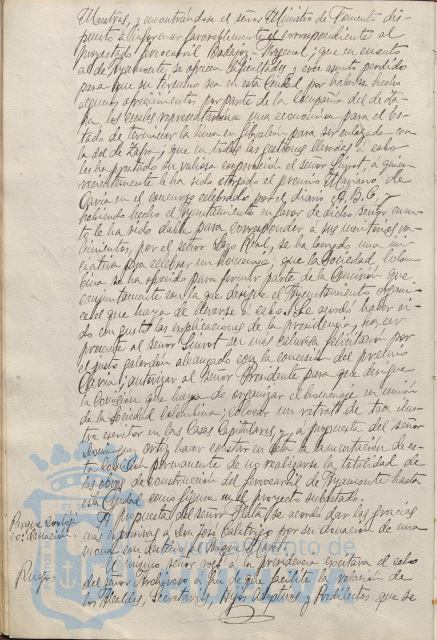 Maestres, y encontrándose el señor Ministro de Fomento dis-
puesto a informar favorablemente el correspondiente al
proyectado ferrocarril Badajoz-Fregenal; que en cuanto
al de Ayamonte, se ofrecen dificultades y cree asunto perdido
para que su término sea en esta Ciudad por haberse hecho
algunos ofrecimientos por parte de la Compañía del de Za-
fra los cuales representarían una economía para el Es-
tado de terminar la línea en Gibraleón para ser enlazado con
la de Zafra; que en todas las gestiones llevadas a cabo
les ha prestado su valiosa cooperación el señor Siurot, a quien
recientemente le ha sido otorgado el premio Mariano de
Cavia en el concurso celebrado por el diario A.B.C. y
habiendo hecho el Ayuntamiento en favor de dicho señor cuan-
to le ha sido dable para corresponder a sus meritorios
por el señor Lazo Real, se ha lanzado una ini-
ciativa para celebrar un homenaje; que la Sociedad Colom-
bina se ha ofrecido para formar parte de la Comisión que
conjuntamente con la que designe el Ayuntamiento organi-
ce el que haya de llevarse a cabo. Se acordó haber oí-
do con gusto las explicaciones de la presidencia, hacer
presente al señor Siurot su más efusiva felicitación por
el justo galardón alcanzado con la concesión del premio
Cavia; autorizar al Señor Presidente para que designe
la Comisión que haya de organizar el homenaje en unión
de la Sociedad Colombina; colocar un retrato de tan ilus-
tre escritor en las Casas Capitulares, y a propuesta del señor
Domínguez Ortiz hacer constar en acta la lamentación de es-
ta Comisión permanente de no realizarse la totalidad de
las obras de construcción del ferrocarril de Ayamonte hasta
esta Ciudad como figura en el proyecto subastado.
A propuesta del señor Mata, se acordó dar las gracias
expresivas a Don José Calatrigo por su donación de una
El mismo señor rogó a la presidencia excitara el celo
del señor Archivero a fin de que facilite la relación de
los Alcaldes, Secretarios, Hijos Adoptivos y Arquitectos, que se
Ruegos
Ayuntamiento de